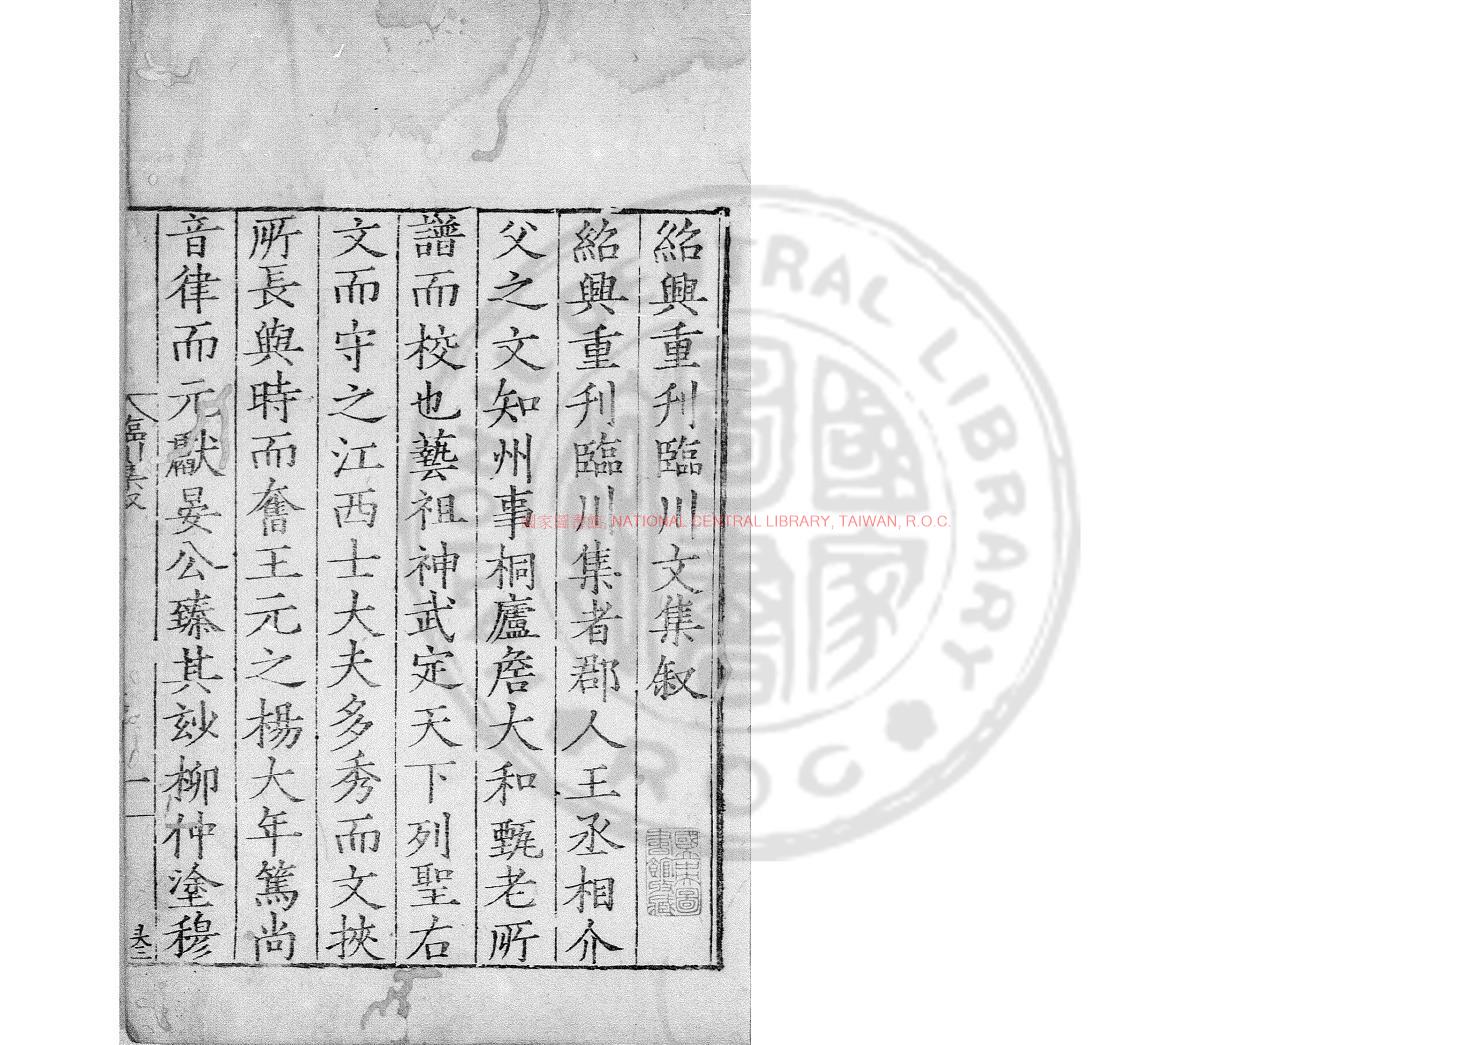 紹興重刋臨川文集叙
紹興重刋臨川集者郡人王丞相介
父之文知州事桐廬詹大和甄老所
譜而校也藝祖神武定天下列聖右
文而守之江西士大夫多秀而文挾
所長與時而奮王元之楊大年篤尚
音律而元獻晏公臻其玅柳仲塗穆
臨川集叙
一
國家圖書館, NATIONAL CENTRAL LIBRARY, TAIWAN, R.O.C.
CENTRAL LIBRARY
R.O.C
國家圖書